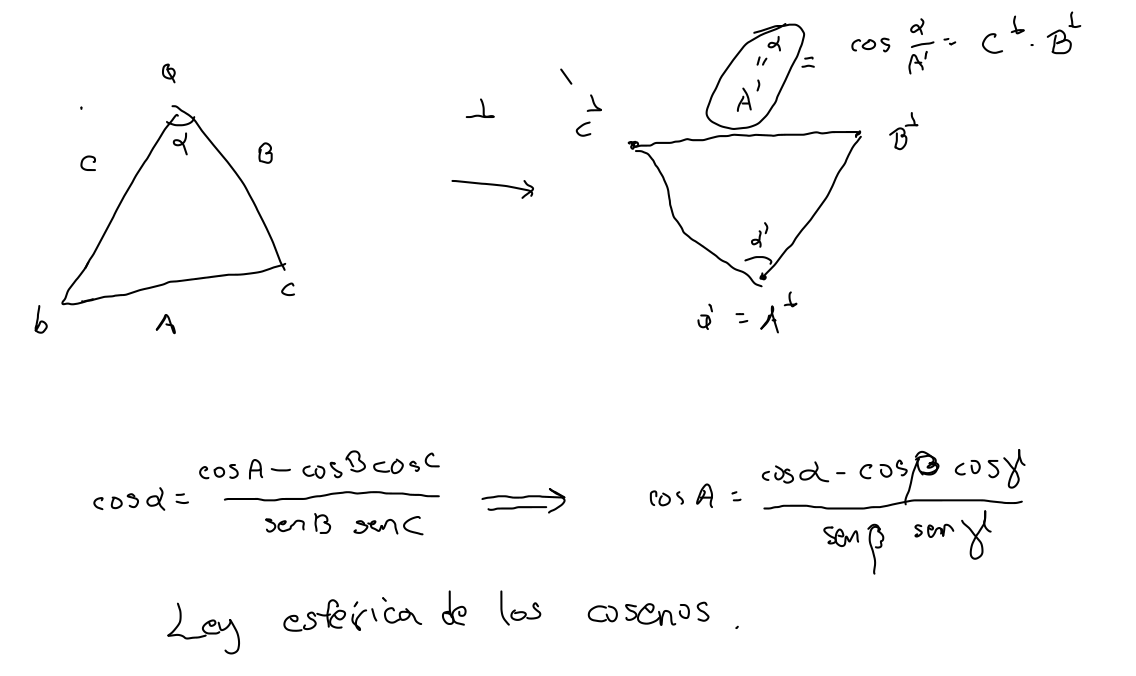 a
α
C
B
b
c
A
⊥
→
C^⊥
α
"
A'
= cos α/A' = C^⊥ · B^⊥
B^⊥
α'
a' = A^⊥
cos α = (cos A - cos B cos C)/(sen B sen C) ⟹ cos A = (cos α - cos β cos γ)/(sen β sen γ)
Ley esférica de los cosenos.